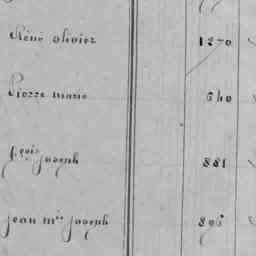 René olivier 1270
Pierre marie 640
f.çois joseph 881
jean m.ie joseph 896